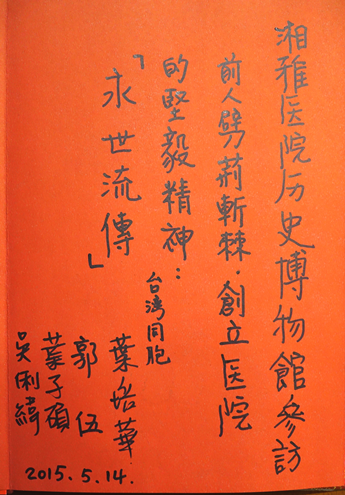 湘雅医院历史博物館參訪
前人劈荊斬棘．創立医院
的堅毅精神：
「永世流傳」
台湾同胞
葉培華
郭伍
葉子碩
吳俐緯
2015.5.14.